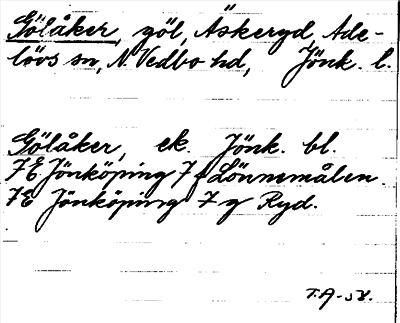 Gölåker, göl, Äskeryd, Ade-
lövs sn, N. Vedbo hd, Jönk. l.
Gölåker, ek. Jönk. bl.
7E Jönköping 7 f Lönnemålen
7E Jönköping 7 g Ryd.
T.A-58.